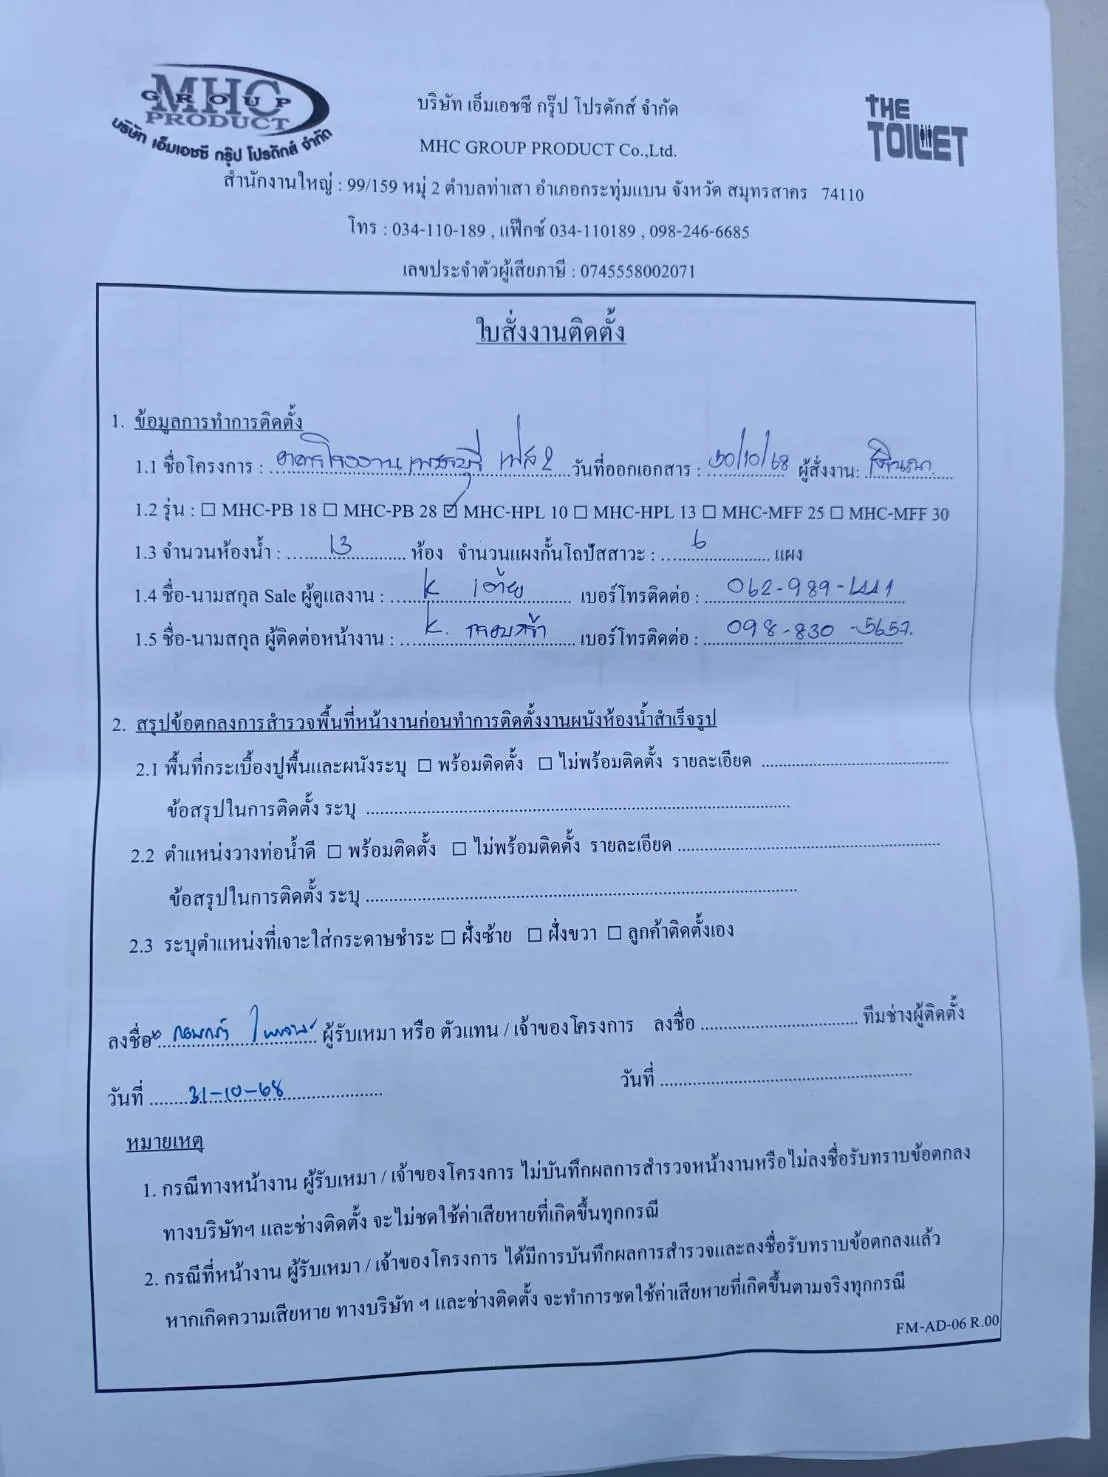 MHC
GROUP
PRODUCT
บริษัท เอ็มเอชซี กรุ๊ป โปรดักส์ จำกัด
THE
TOILET
บริษัท เอ็มเอชซี กรุ๊ป โปรดักส์ จำกัด
MHC GROUP PRODUCT Co.,Ltd.
สำนักงานใหญ่ : 99/159 หมู่ 2 ตำบลท่าเสา อำเภอกระทุ่มแบน จังหวัด สมุทรสาคร 74110
โทร : 034-110-189 , แฟ๊กซ์ 034-110189 , 098-246-6685
เลขประจำตัวผู้เสียภาษี : 0745558002071
ใบสั่งงานติดตั้ง
1. ข้อมูลการทำการติดตั้ง
1.1 ชื่อโครงการ : อาคารโรงงาน เพชรบุรี เฟส 2 วันที่ออกเอกสาร : 30/10/68 ผู้สั่งงาน:
1.2 รุ่น : ☐ MHC-PB 18 ☐ MHC-PB 28 ☑ MHC-HPL 10 ☐ MHC-HPL 13 ☐ MHC-MFF 25 ☐ MHC-MFF 30
1.3 จำนวนห้องน้ำ : 13 ห้อง จำนวนแผงกั้นโถปัสสาวะ : 6 แผง
1.4 ชื่อ-นามสกุล Sale ผู้ดูแลงาน : K เต้ย เบอร์โทรติดต่อ : 062-989-
1.5 ชื่อ-นามสกุล ผู้ติดต่อหน้างาน : K. เบอร์โทรติดต่อ : 098-830-5657
2. สรุปข้อตกลงการสำรวจพื้นที่หน้างานก่อนทำการติดตั้งงานผนังห้องน้ำสำเร็จรูป
2.1 พื้นที่กระเบื้องปูพื้นและผนังระบุ ☐ พร้อมติดตั้ง ☐ ไม่พร้อมติดตั้ง รายละเอียด
ข้อสรุปในการติดตั้ง ระบุ
2.2 ตำแหน่งวางท่อน้ำดี ☐ พร้อมติดตั้ง ☐ ไม่พร้อมติดตั้ง รายละเอียด
ข้อสรุปในการติดตั้ง ระบุ
2.3 ระบุตำแหน่งที่เจาะใส่กระดาษชำระ ☐ ฝั่งซ้าย ☐ ฝั่งขวา ☐ ลูกค้าติดตั้งเอง
ลงชื่อ ผู้รับเหมา หรือ ตัวแทน / เจ้าของโครงการ ลงชื่อ ทีมช่างผู้ติดตั้ง
วันที่ 31-10-68 วันที่
หมายเหตุ
1. กรณีทางหน้างาน ผู้รับเหมา / เจ้าของโครงการ ไม่บันทึกผลการสำรวจหน้างานหรือไม่ลงชื่อรับทราบข้อตกลง
ทางบริษัทฯ และช่างติดตั้ง จะไม่ชดใช้ค่าเสียหายที่เกิดขึ้นทุกกรณี
2. กรณีที่หน้างาน ผู้รับเหมา / เจ้าของโครงการ ได้มีการบันทึกผลการสำรวจและลงชื่อรับทราบข้อตกลงแล้ว
หากเกิดความเสียหาย ทางบริษัท ฯ และช่างติดตั้ง จะทำการชดใช้ค่าเสียหายที่เกิดขึ้นตามจริงทุกกรณี
FM-AD-06 R.00